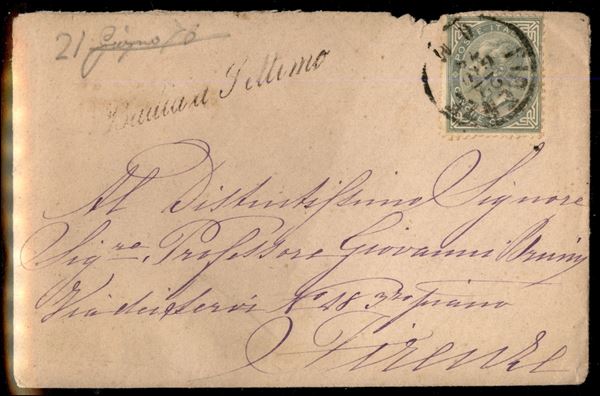 21 Giugno 76
Badia a Settimo
Al Distintissimo Signore
Sig.re Professore Giovanni Bruni
Via dei Servi No 48 3zo piano
Firenze